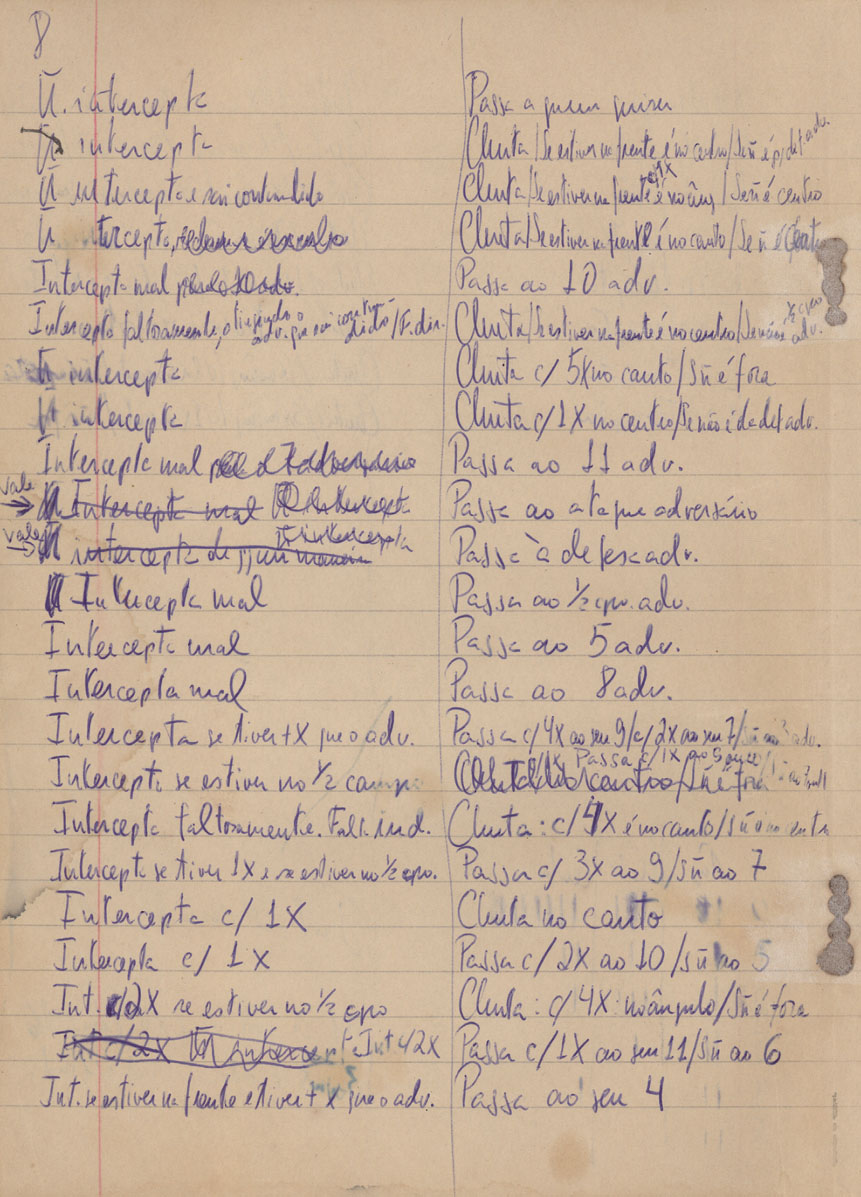 8
Ñ. intercepta Passa a quem quiser
Ñ intercepta Chuta/Se estiver na frente é no centro/Se ñ é p/def adv.
Ñ intercepta e sai contundido Chuta/Se estiver na frente é no âng/Se ñ é centro
Ñ. intercepta, Chuta/Se estiver na frente é no canto/Se ñ é
Intercepta mal Passa ao 10 adv.
Intercepta faltosamente, atingindo o adv. que sai contundido/F.dir. Chuta/Se estiver na frente é no centro/Se não é ½ cpo adv.
Ñ intercepta Chuta c/ 5X no canto/Sñ é fora
Ñ intercepta Chuta c/1X no centro/Se não é da def adv.
Intercepta mal Passa ao 11 adv.
vale Ñ intercepta Passa ao ataque adversário
vale Ñ intercepta Passa à defesa adv.
Intercepta mal Passa ao ½ cpo. adv.
Intercepta mal Passa ao 5 adv.
Intercepta mal Passa ao 8 adv.
Intercepta se tiver +X que o adv. Passa c/4X ao seu 9/c/2X ao seu 7/Sñ ao 3 adv.
Intercepta se estiver no ½ campo Passa c/1X ao 5
Intercepta faltosamente. Falt. ind. Chuta: c/4X é no canto/Sñ no centro
Intercepta se tiver 1X e se estiver no ½ cpo. Passa c/ 3X ao 9/Sñ ao 7
Intercepta c/ 1X Chuta no canto
Intercepta c/ 1X Passa c/2X ao 10/Sñ ao 5
Int. c/2X se estiver no ½ cpo Chuta: c/4X no ângulo/Sñ é fora
Int c/2X Passa c/1X ao seu 11/Sñ ao 6
Int. se estiver na frente e tiver + X que o adv. Passa ao seu 4